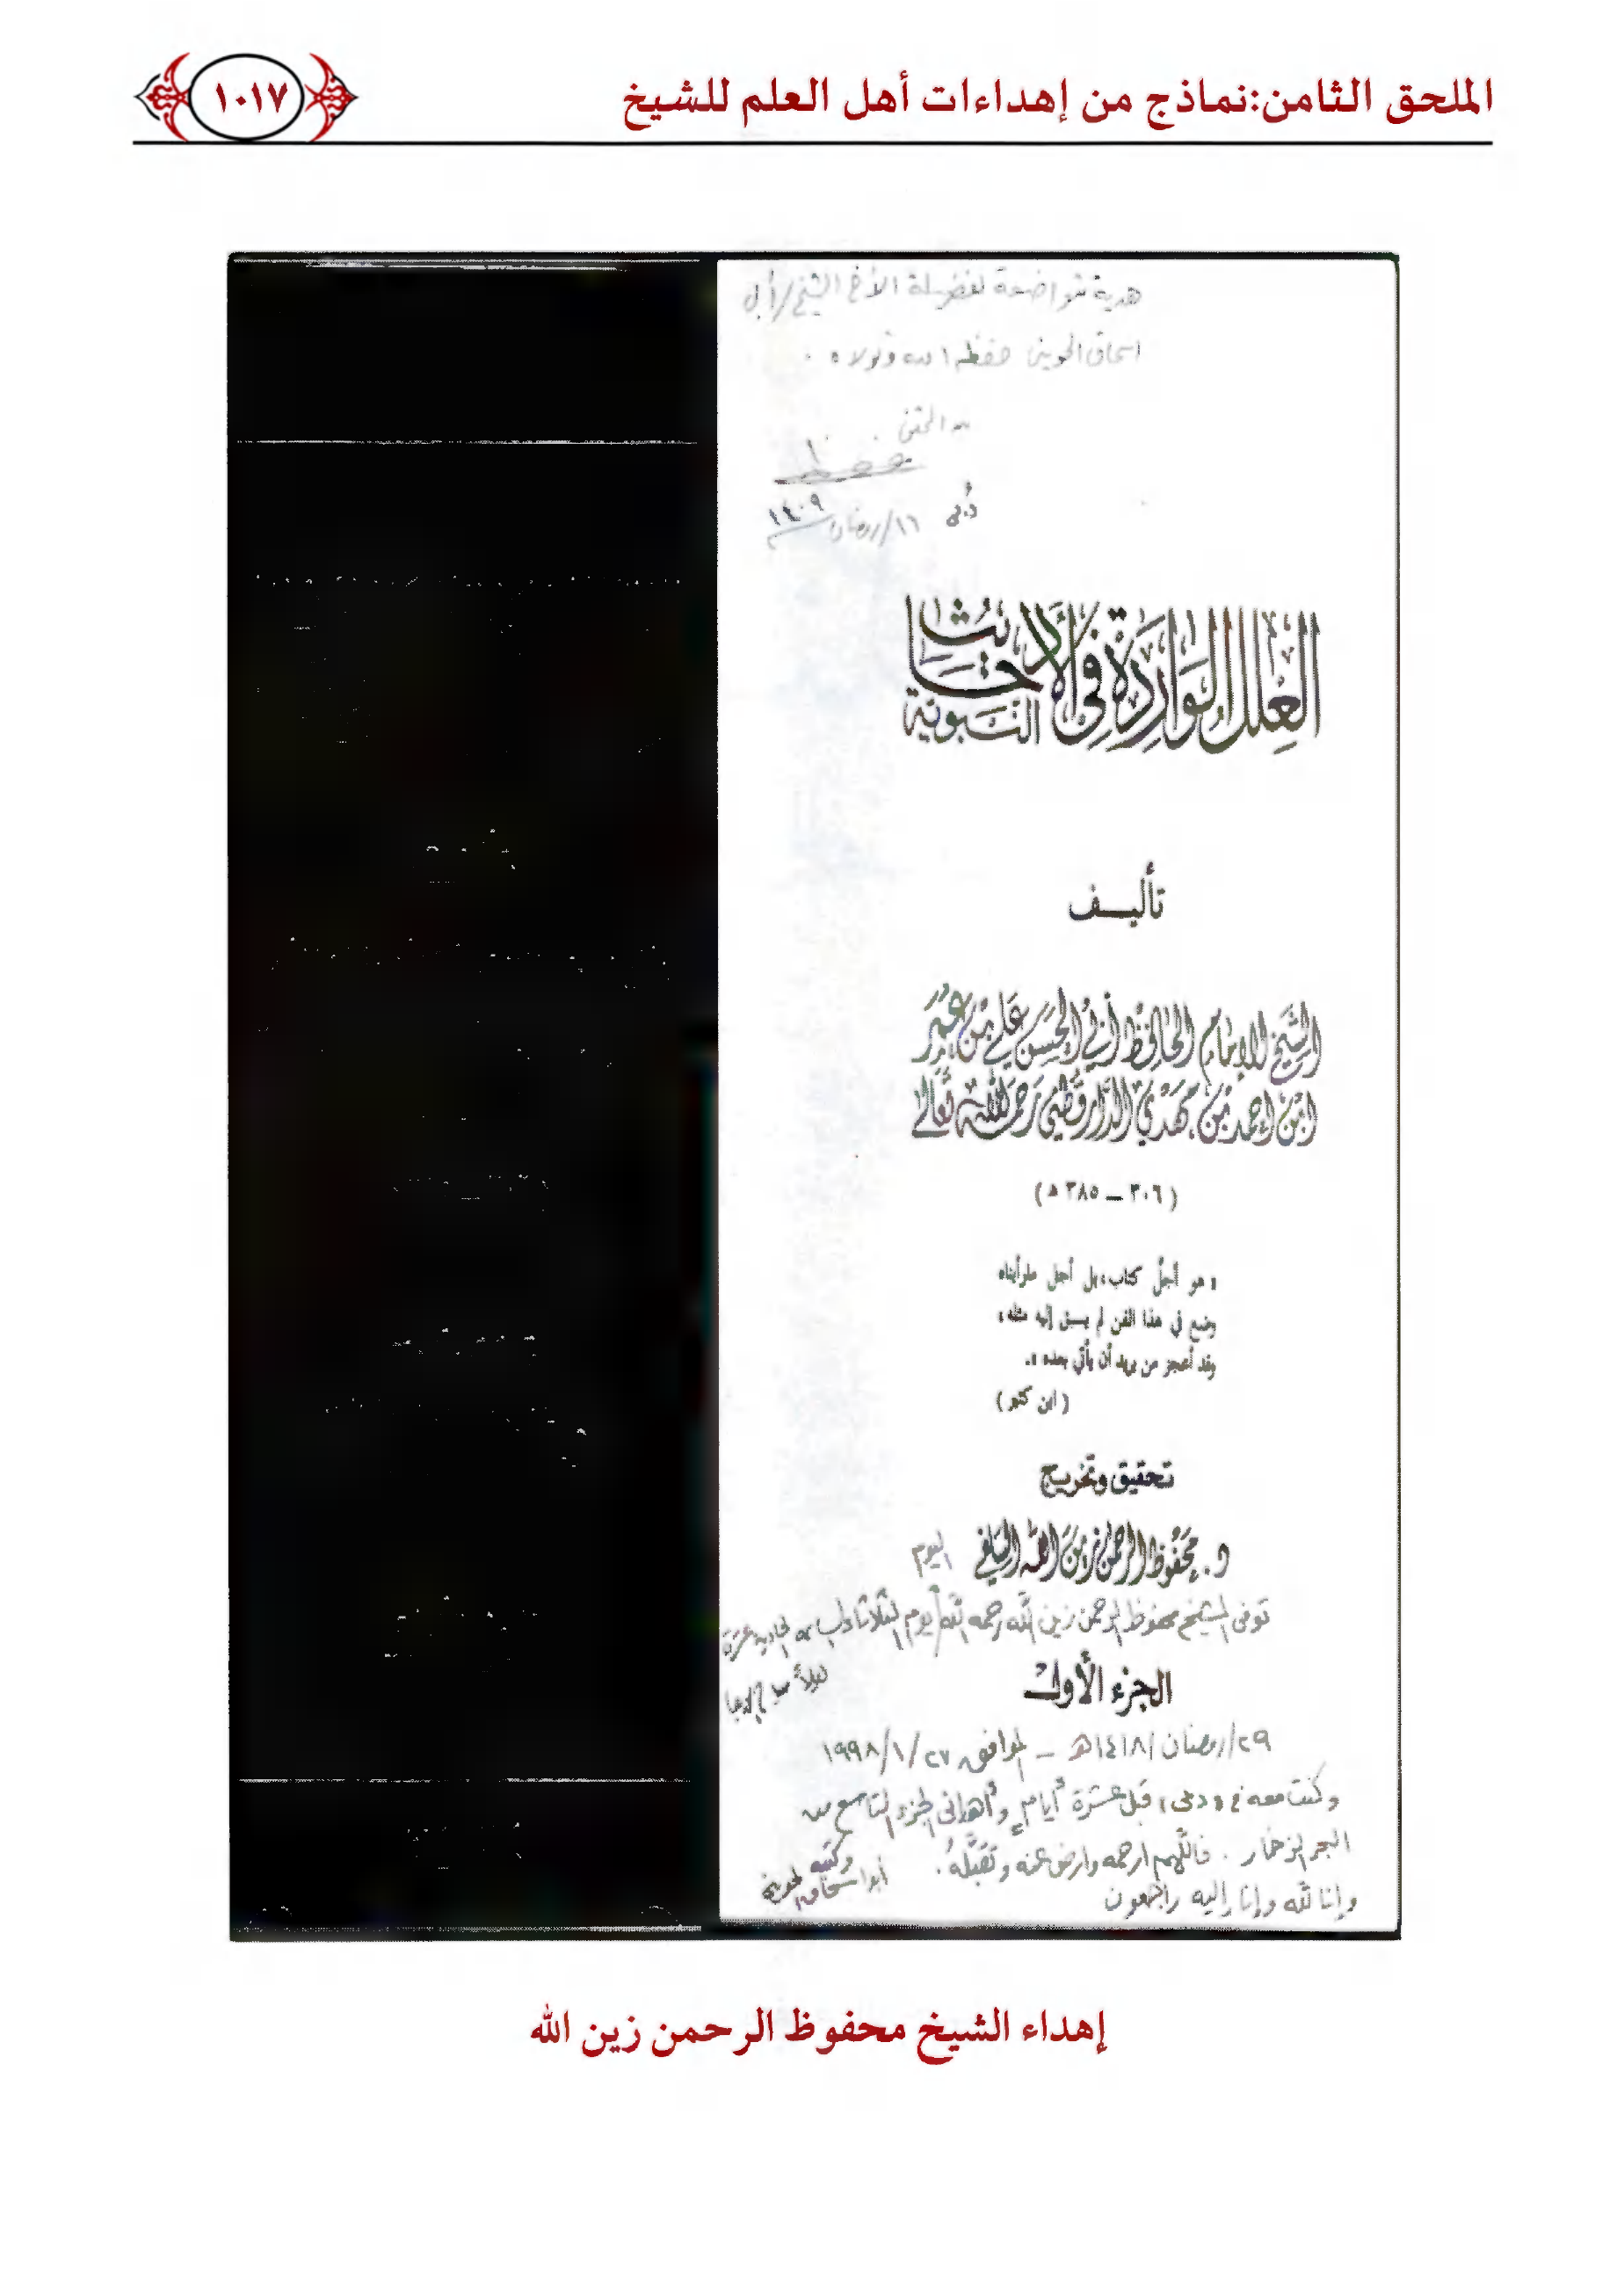 الملحق الثامن:نماذج من إهداءات أهل العلم للشيخ
١٠١٧
هدية متواضعة لفضيلة الأخ الشيخ/أبي
اسحاق الحويني حفظه الله وتولاه .
من المحقق
دبي ١٦/رمضان/١٤٠٩
العلل الواردة في الأحاديث
النبوية
تأليف
الشيخ الإمام الحافظ أبي الحسن علي بن عمر
ابن أحمد بن مهدي الدارقطني رحمه الله تعالى
(٣٠٦ – ٣٨٥ ه)
« هو أجلّ كتاب، بل أجل ما رأيناه
وضع في هذا الفن لم يسبق إليه مثله،
وقد أعجز من يريد أن يأتي بعده ».
(ابن كثير)
تحقيق وتخريج
د. محفوظ الرحمن زين الله السلفي
اليوم
توفى الشيخ محفوظ الرحمن زين الله رحمه الله يوم الثلاثاء الحادية عشرة
ليلاً
الجزء الأول
٢٩/رمضان/١٤١٨هـ – الموافق ٢٧/١/١٩٩٨
وكنت معه في «دبى» قبل عشرة أيام وأهدانى الجزء التاسع من
البحر الزخار . فاللهم ارحمه وارض عنه وتقبّله .
وإنا لله وإنا إليه راجعون
وكتبه
أبو إسحاق الحوينى
إهداء الشيخ محفوظ الرحمن زين الله